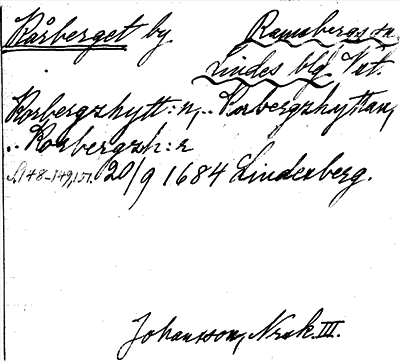 Kårberget by Ramsbergs sn
Lindes blg Vstm.
Korbergzhytt:n, .. Korbergzhyttan,
.. Korbergzh:n
s. 148-149, 151. 20/9 1684 Lindesberg.
Johansson, Nrsk. III.